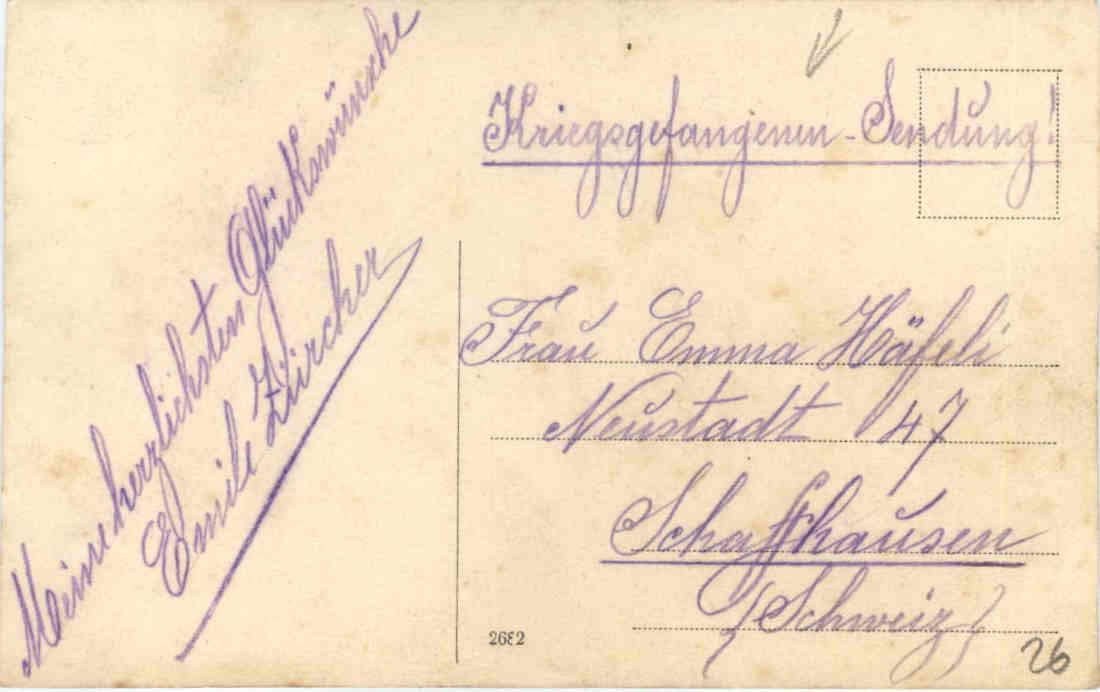 Meine herzlichsten Glückswünsche
Emile Zürcher
Kriegsgefangenen-Sendung!
Frau Emma Häfeli
Neustadt 47
Schaffhausen
(Schweiz)
2682
26